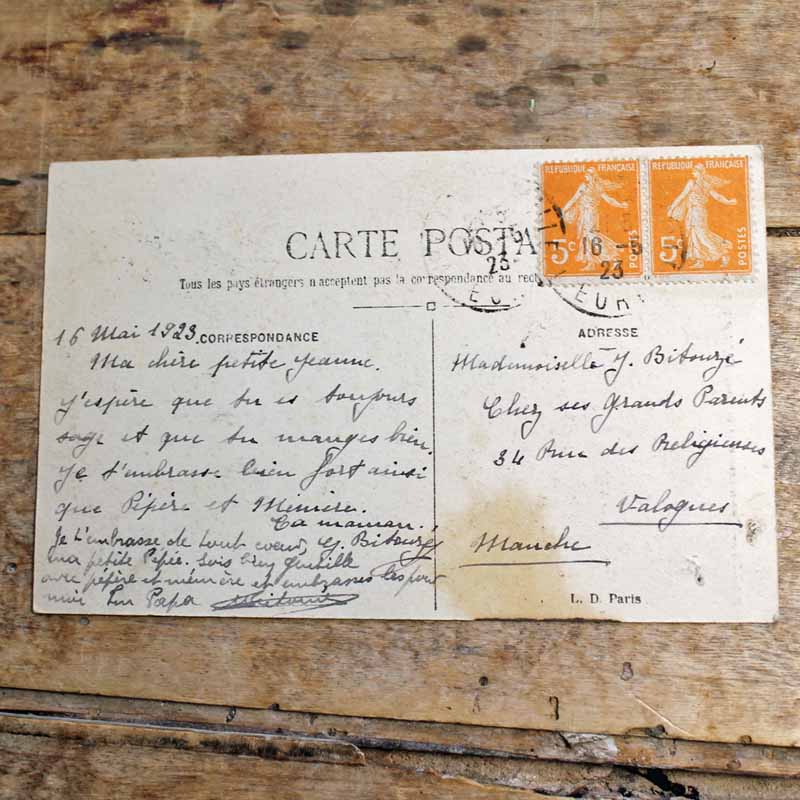 CARTE POSTA
Tous les pays étrangers n'acceptent pas la correspondance au rect
REPUBLIQUE FRANÇAISE
5c
POSTES
REPUBLIQUE FRANÇAISE
5c
POSTES
16 -5
23
EUR
23
EU
CORRESPONDANCE
16 Mai 1923.
Ma chère petite Jeanne.
J'espère que tu es toujours
sage et que tu manges bien.
Je t'embrasse bien fort ainsi
que Pépère et Mémère.
Ta maman.
J. Bitouzé
Je t'embrasse de tout coeur,
ma petite Pépée. Sois bien gentille
avec pépère et mémère et embrasses les pour
moi Ton Papa
ADRESSE
Mademoiselle J. Bitouzé
Chez ses Grands Parents
34 Rue des Religieuses
Valognes
Manche
L. D. Paris